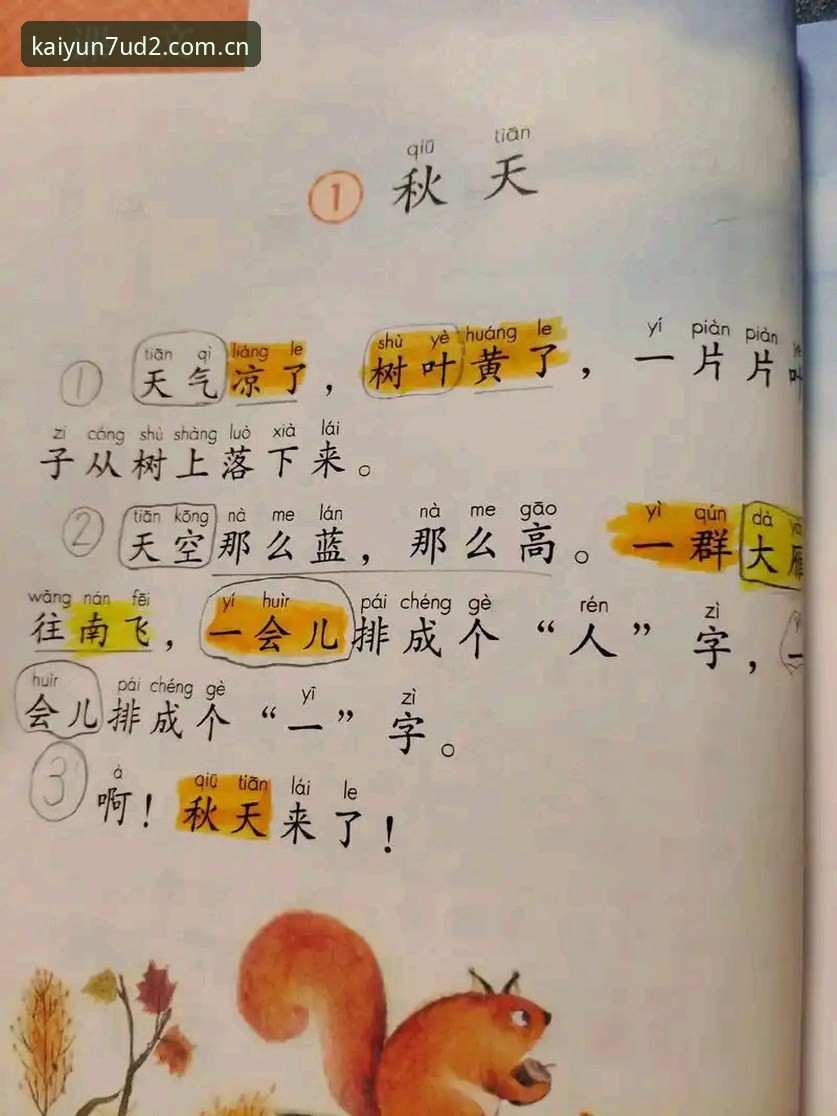 kaiyun7ud2.com.cn
qiū tiān
1 秋天
tiān qì liáng le shù yè huáng le yí piàn piàn
① 天气凉了，树叶黄了，一片片叶
zi cóng shù shàng luò xià lái
子从树上落下来。
tiān kōng nà me lán nà me gāo yì qún dà
② 天空那么蓝，那么高。一群大雁
wǎng nán fēi yí huìr pái chéng gè rén zì
往南飞，一会儿排成个“人”字，一
huìr pái chéng gè yī zì
会儿排成个“一”字。
à qiū tiān lái le
③ 啊！秋天来了！